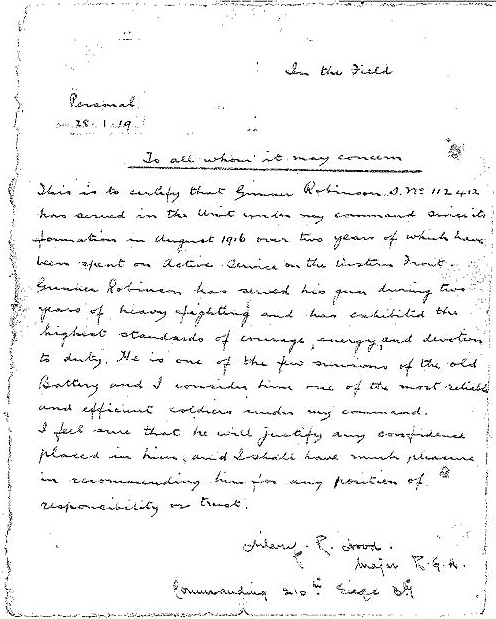 In the Field
Personal
28.1.19
To all whom it may concern
This is to certify that Gunner Robinson. S. No 112412
has served in the Unit under my command since its
formation in August 1916 over two years of which have
been spent on Active Service on the Western Front.
Gunner Robinson has served his gun during two
years of heavy fighting and has exhibited the
highest standards of courage, energy, and devotion
to duty. He is one of the few survivors of the old
Battery and I consider him one of the most reliable
and efficient soldiers under my command.
I feel sure that he will justify any confidence
placed in him, and I shall have much pleasure
in recommending him for any position of
responsibility or trust.
R. Wood.
Major R.G.A.
Commanding 210th Siege By